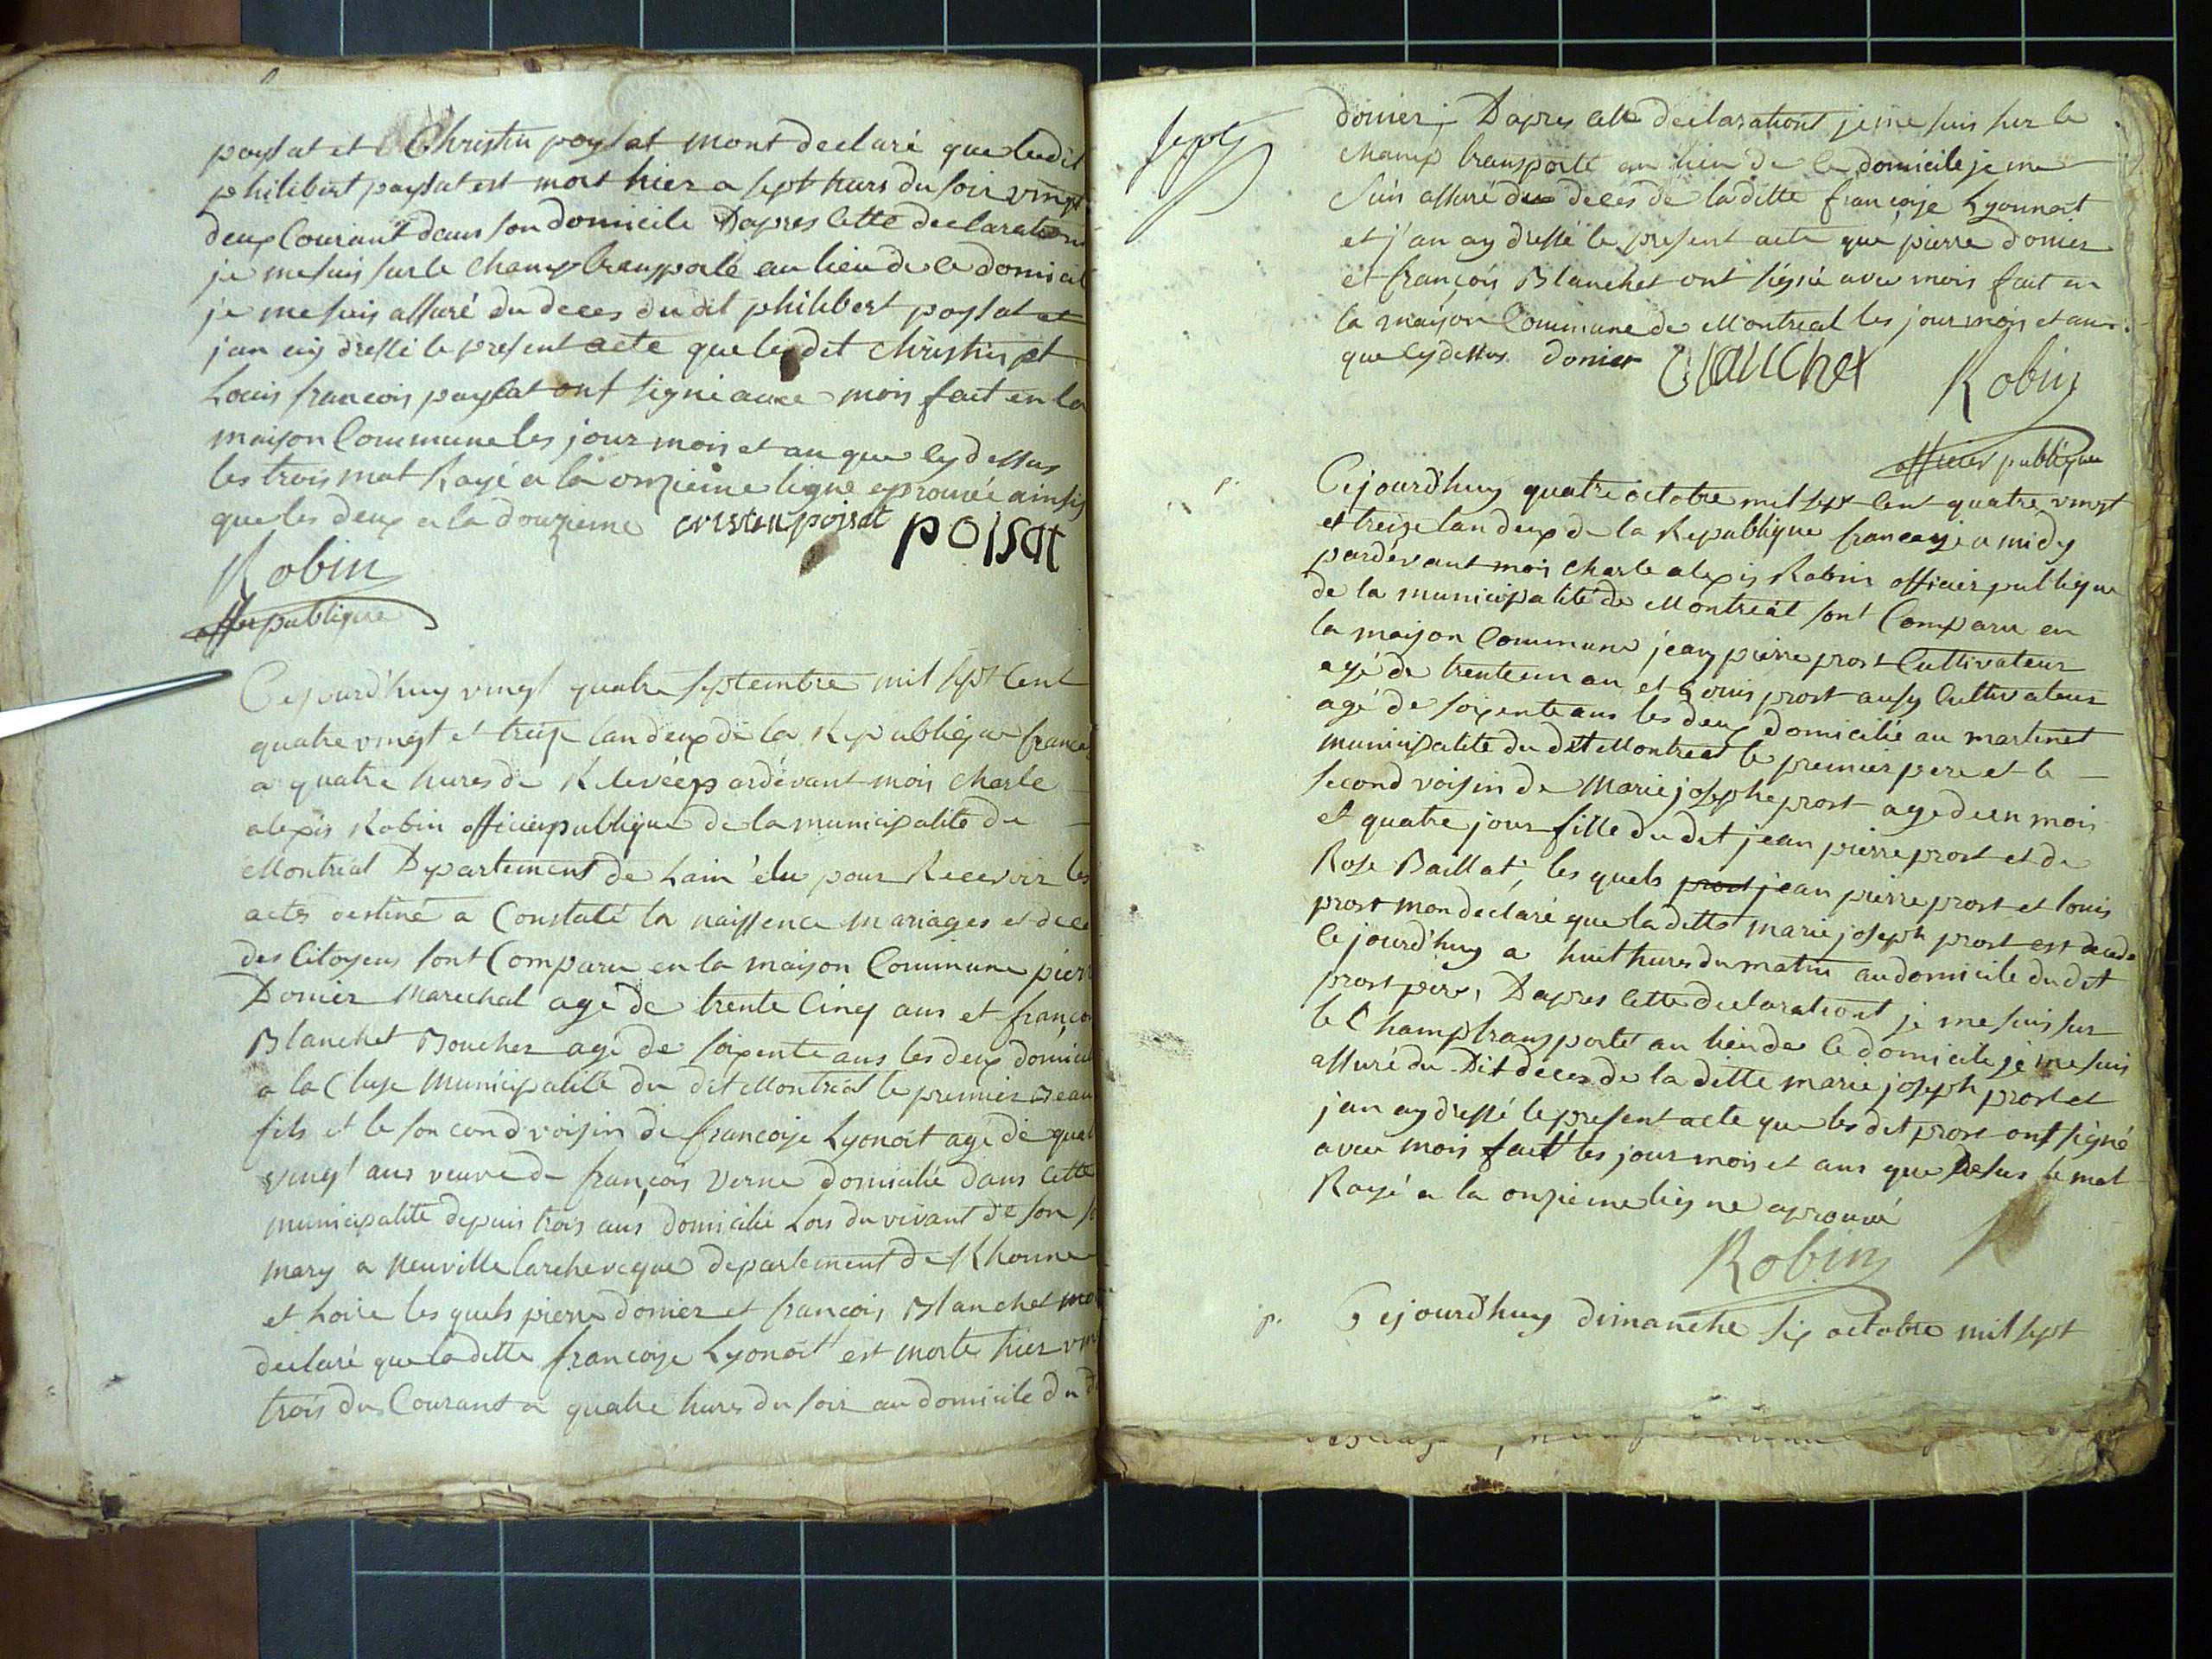 poysat et Christin poysat mont declaré que ledit
philibert poysat est mort hier a sept hures du soir vingt
deux Courant dans son domicile Dapres cette declarationt
je me suis sur le champ transporté au lieu de ce domicil
je me suis assuré du deces du dit philibert poysat et
jan ay dressé le present acte que le dit christin et
Louis francois poysat ont signé avec mois fait en la
maison Commune les jour mois et an que cy dessus
les trois mot Rayé a la onzieme ligne aprouvée ainsis
que les deux a la douzieme cristin poisat poisat
Robin
offer publique
Cejourd'huy vingt quatre septembre mil sept Cent
quatre vingt et treize lan deux de la Republique francais
a quatre hures de Relevée pardevant mois Charle
alexis Robin officier publique de la municipalité de
Montreal Departement de Lain élu pour Recevoir les
actes destiné a Constaté la naissence mariages et dece
des Citoyens sont Comparu en la maison Commune pierr
Donier marechal agé de trente Cinq ans et françoi
Blanchet Boucher agé de soixente ans les deux domicil
a la Cluse Municipalité du dit Montreal le premier Beau
fils et le soncond voisin de francoise Lyonait agé de quat
vingt ans veuve de françois Verne domicilié dans cette
municipalité depuis trois ans domicilié Lors du vivant de son
mary a neuville larcheveque departement de Rhonne
et Loire les quels pierre donier et francois Blanchet mo
declaré que la ditte francoise Lyonait est morte hier vin
trois du Courant a quatre hures du soir au domicile du d
donier; D'apres cette declarationt je me suis sur le
champ transporté au lieu de ce domicile je me
suis assuré du deces de la ditte françoise Lyonnait
et j'an ay dressé le present acte que pierre donier
et françois Blanchet ont signé avec mois fait en
la maison Commune de Montreal les jour mois et ans
que cy dessus donier Blanchet Robin
officier publique
Cejourd'huy quatre octobre mil sept Cent quatre vingt
et treize lan deux de la Republique francaise a midy
pardevant mois Charle alexis Robin officier publique
de la municipalité de Montreal sont Comparu en
la maison Commune jean pierre prost Cultivateur
agé de trente un an et Louis prost ausy Cultivateur
agé de soixente ans les deux domicilié au martinet
municipalité du dit Montreal le premier pere et le
second voisin de Marie josephe prost agé d'un mois
et quatre jour fille du dit jean pierre prost et de
Rose Baillat, les quels prost jean pierre prost et louis
prost mon declaré que la ditte marie joseph prost est decede
cejourd'huy a huit hures du matin au domicile du dit
prost pere, D'apres cette declarationt je me suis sur
le Champ transporté au lieu de ce domicile je me suis
assuré du Dit deces de la ditte marie joseph prost et
jan ay dressé le present acte que les dit prost ont signé
avec mois fait les jour mois et ans que desus le mot
Rayé a la onzieme ligne aprouvé
Robin
Cejourd'huy dimanche six octobre mil sept